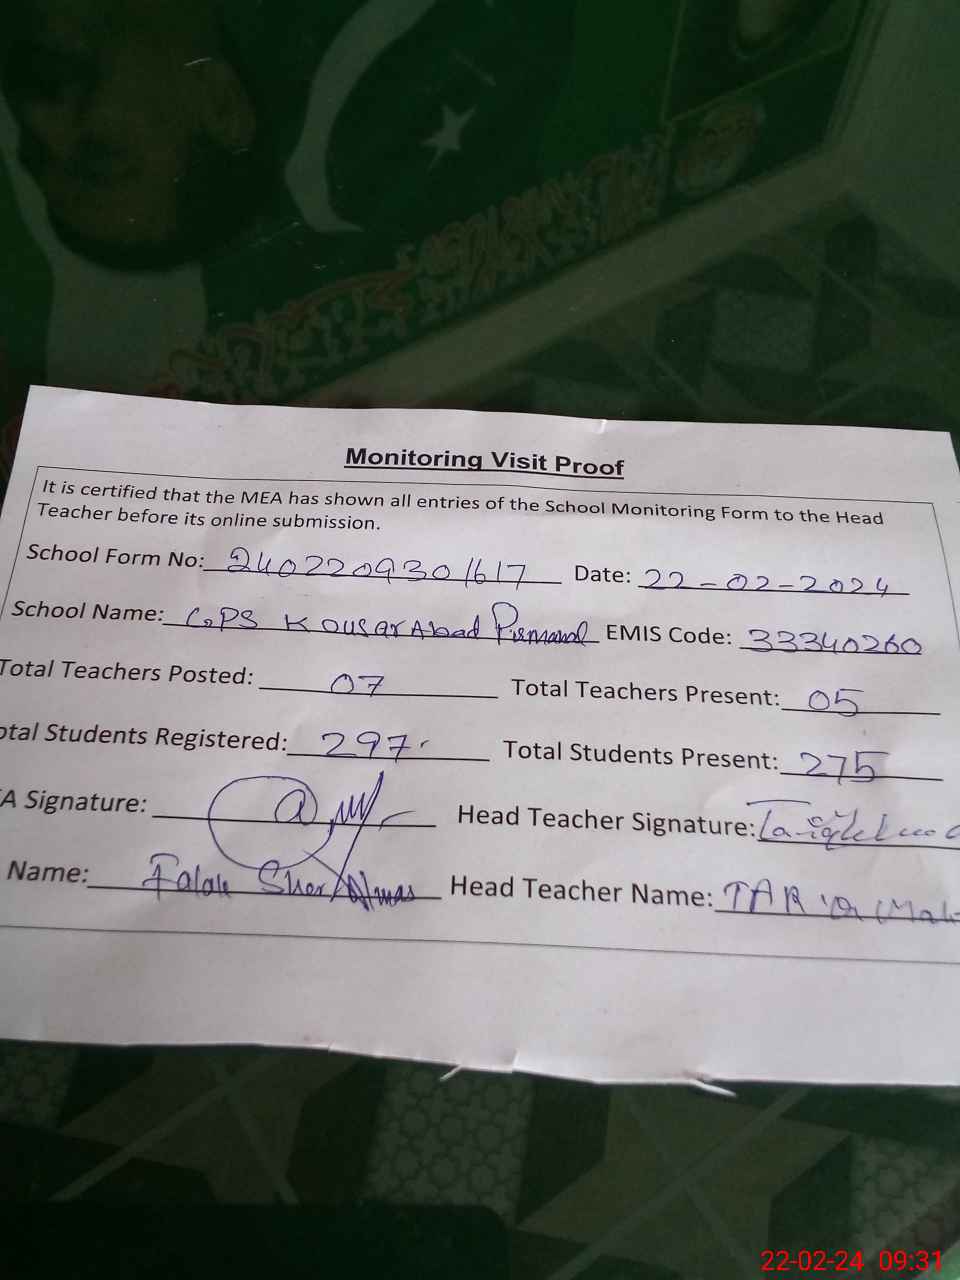 Monitoring Visit Proof
It is certified that the MEA has shown all entries of the School Monitoring Form to the Head
Teacher before its online submission.
School Form No: 2402209301617 Date: 22-02-2024
School Name: GPS Kousar Abad EMIS Code: 33340260
Total Teachers Posted: 07 Total Teachers Present: 05
otal Students Registered: 297 Total Students Present: 275
A Signature: Head Teacher Signature:
Name: Falak Sher Almas Head Teacher Name: TARiq Mah
22-02-24 09:31